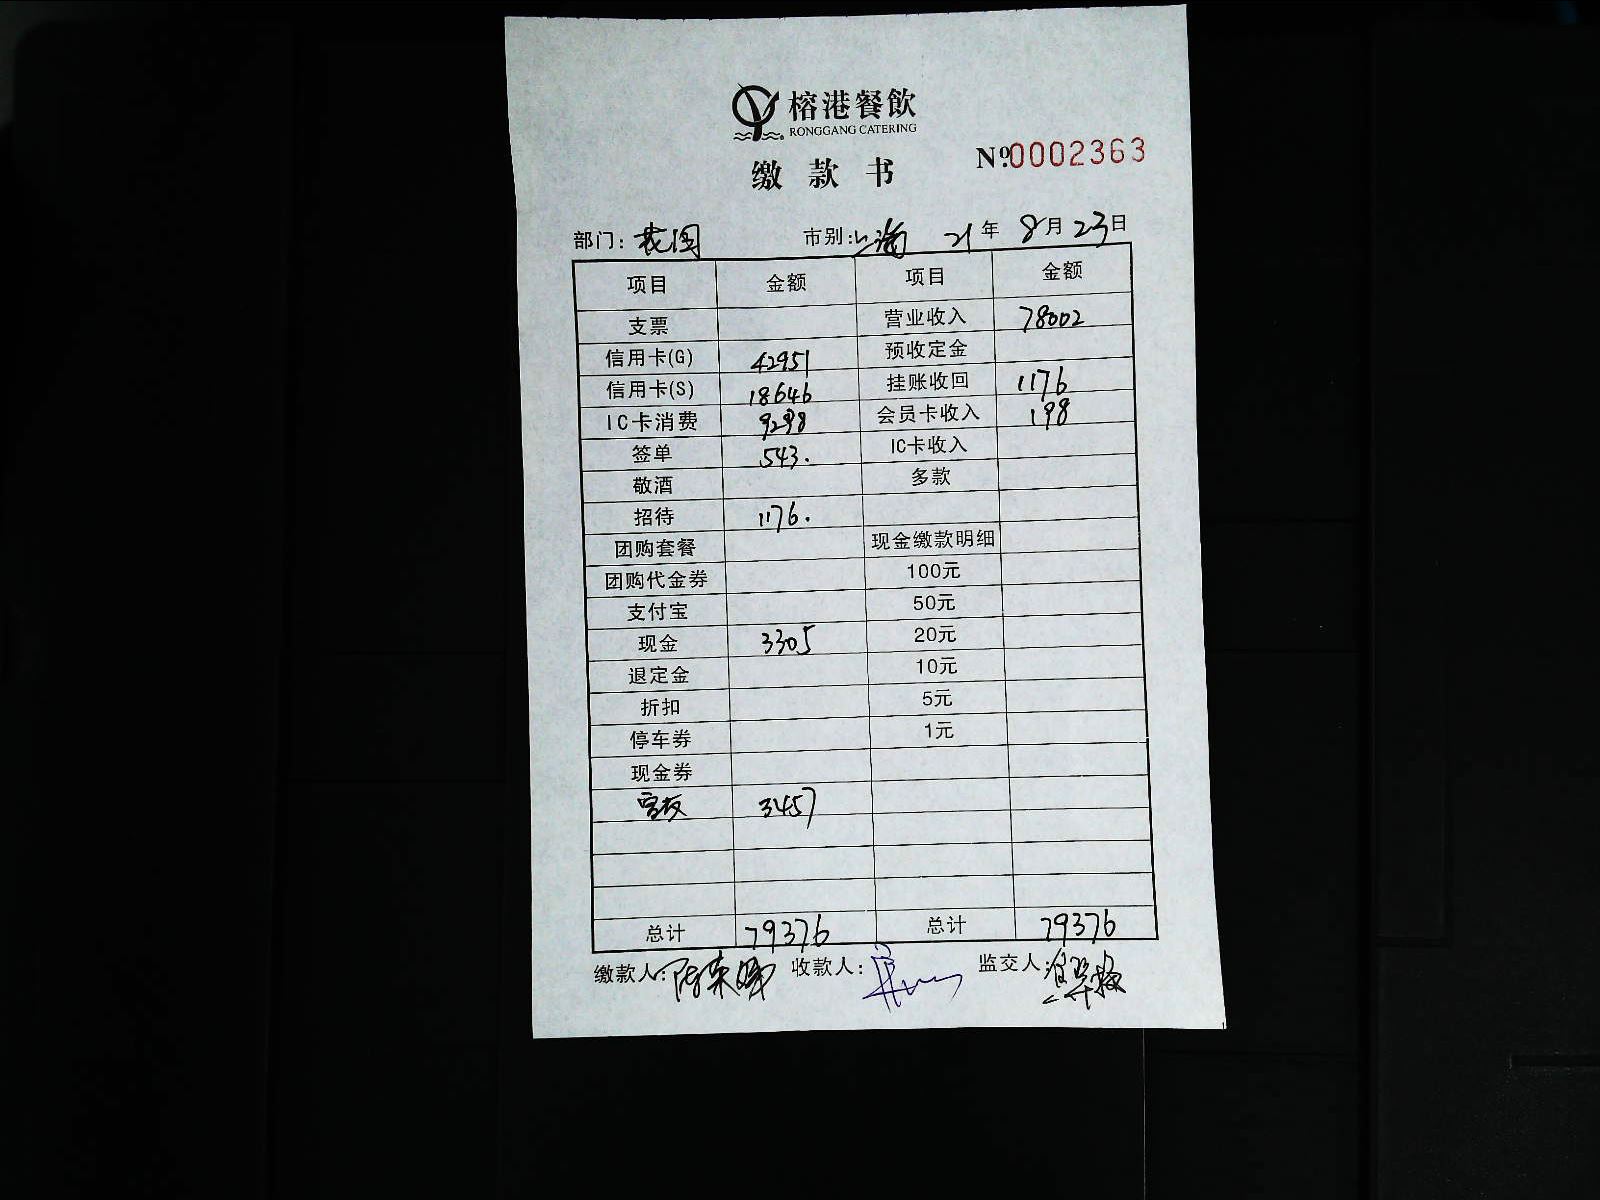 榕港餐飲
RONGGANG CATERING
缴款书 Nº0002363
部门：花园 市别：上海 21年8月23日
项目 金额 项目 金额
支票 营业收入 78002
信用卡(G) 42951 预收定金
信用卡(S) 18646 挂账收回 1176
IC卡消费 9298 会员卡收入 198
签单 543. IC卡收入
敬酒 多款
招待 1176.
团购套餐 现金缴款明细
团购代金券 100元
支付宝 50元
现金 3305 20元
退定金 10元
折扣 5元
停车券 1元
现金券
3457
总计 79376 总计 79376
缴款人： 收款人： 监交人：